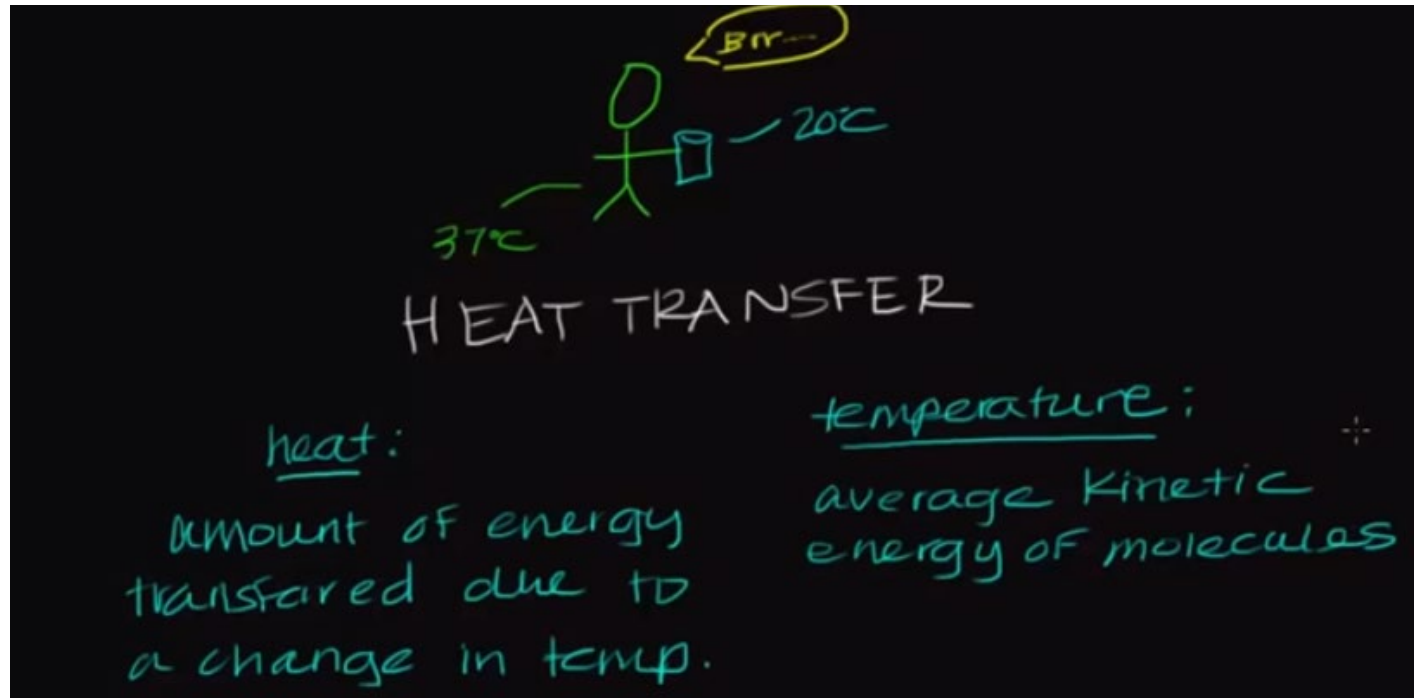 Brr...
20°C
37°C
HEAT TRANSFER
heat:
amount of energy
transfared due to
a change in temp.
temperature:
average kinetic
energy of molecules